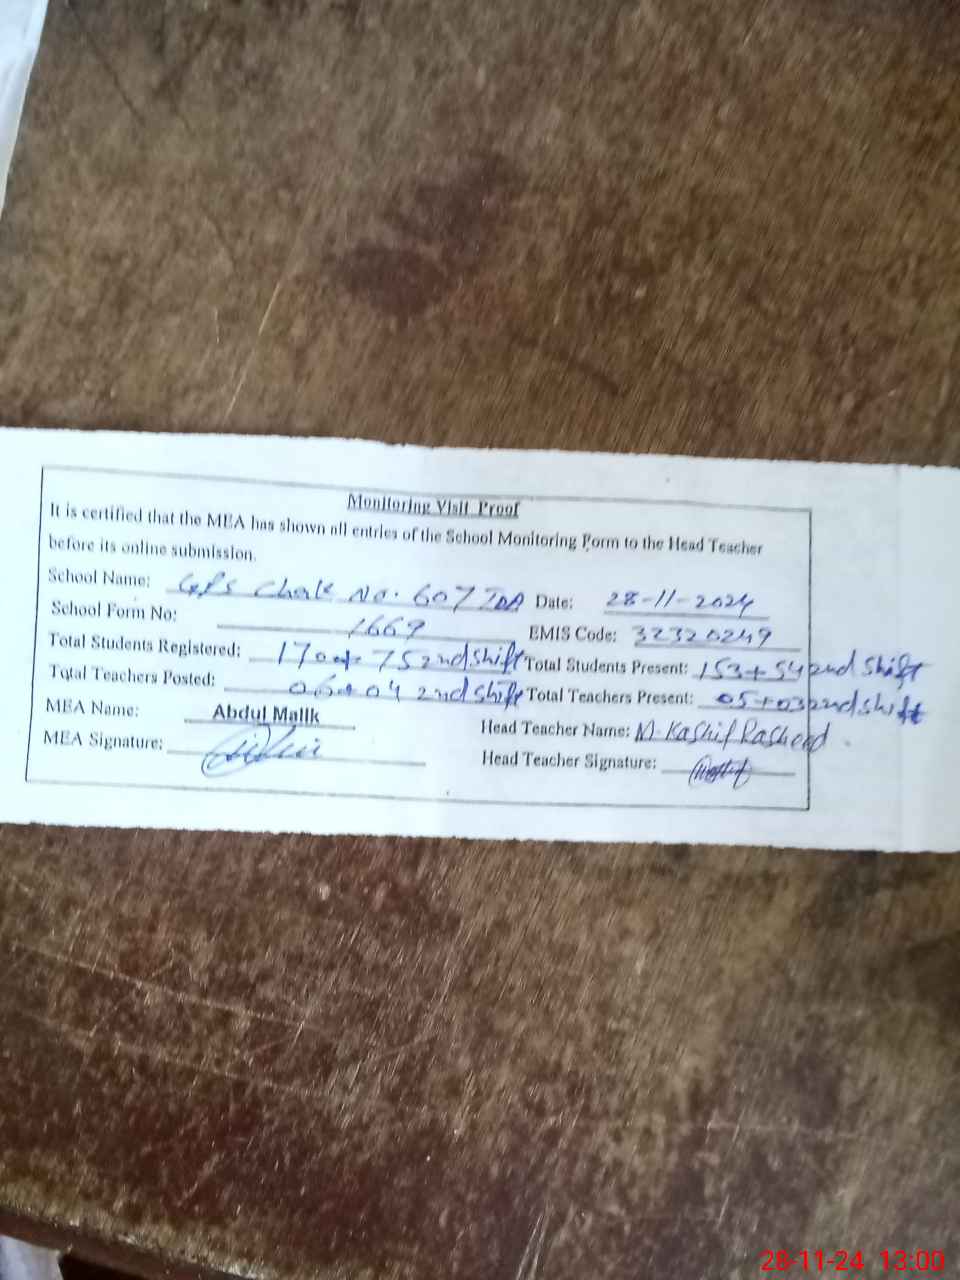 Monitoring Visit Proof
It is certified that the MEA has shown all entries of the School Monitoring Form to the Head Teacher
before its online submission.
School Name: GPS Chak No. 607 TDA Date: 28-11-2024
School Form No: 1669 EMIS Code: 32320249
Total Students Registered: 170+ 75 2nd Shift Total Students Present: 153+54 2nd Shift
Total Teachers Posted: 06+04 2nd Shift Total Teachers Present: 05+03 2nd Shift
MEA Name: Abdul Malik Head Teacher Name: M. Kashif Rasheed
MEA Signature: Head Teacher Signature:
28-11-24 13:00